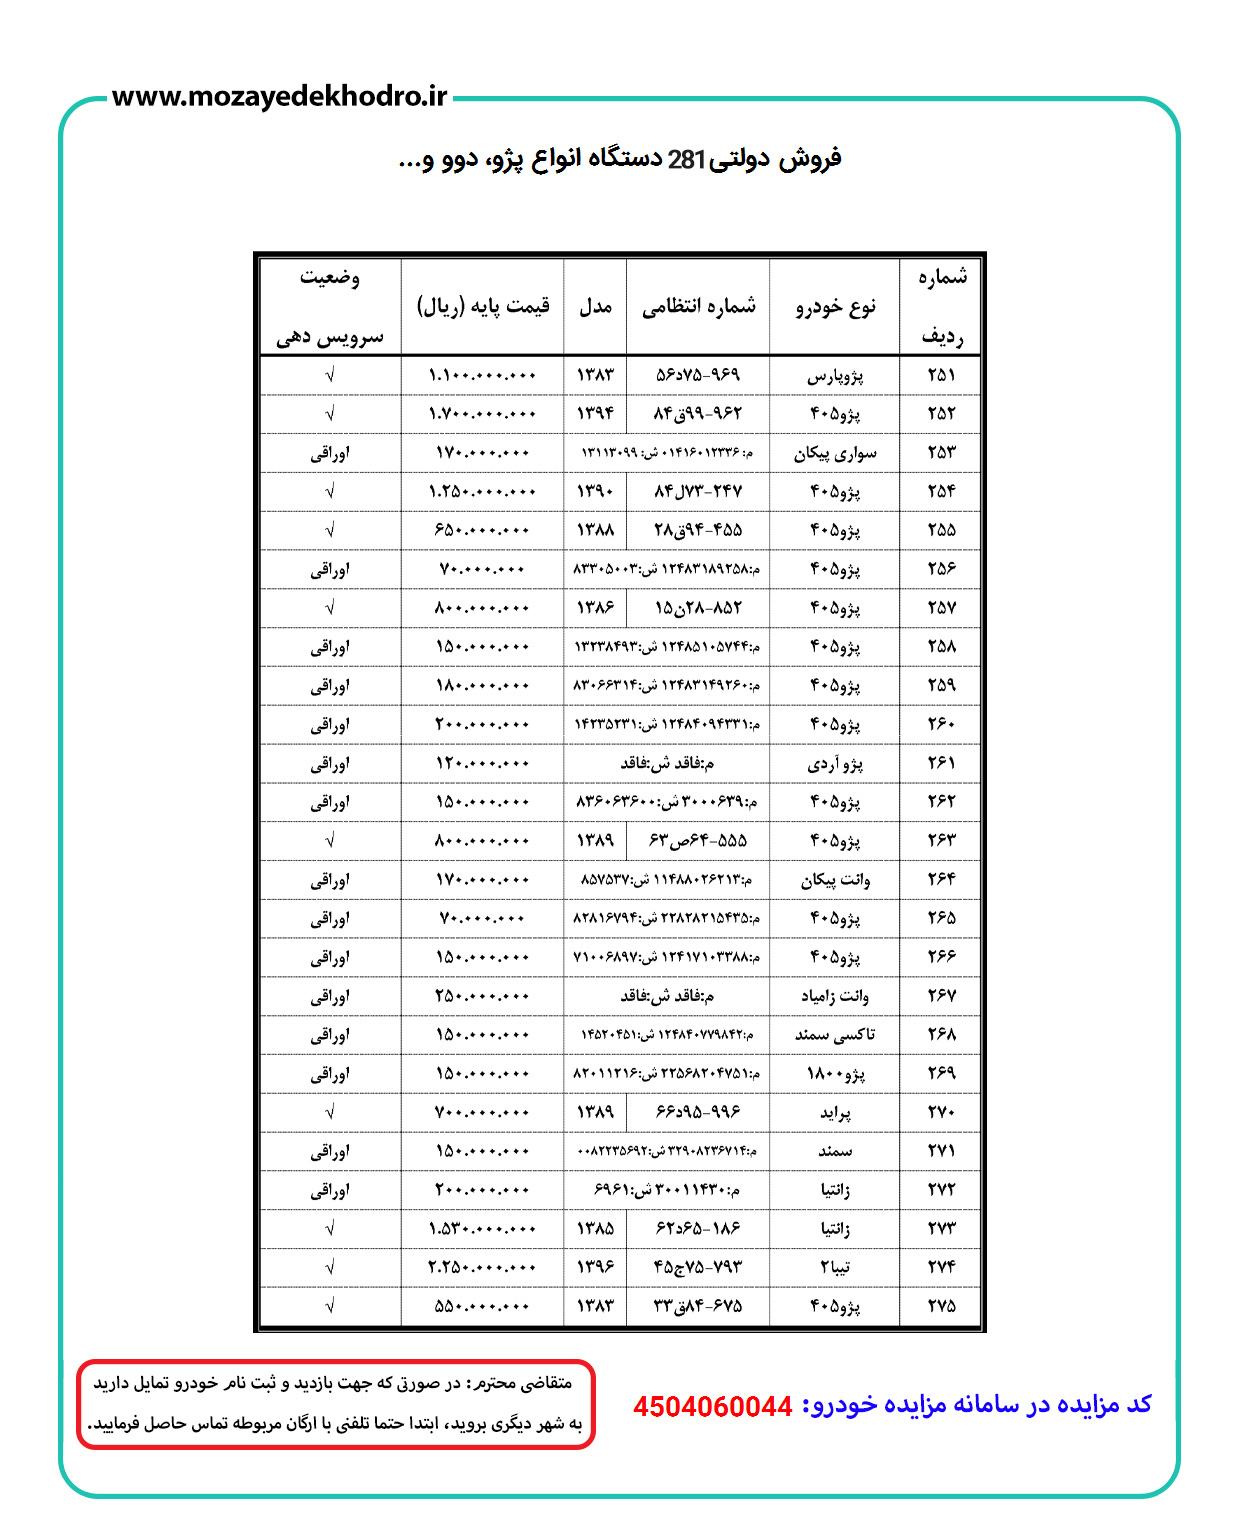 www.mozayedekhodro.ir
فروش دولتی 281 دستگاه انواع پژو، دوو و...
شماره ردیف نوع خودرو شماره انتظامی مدل قیمت پایه (ریال) وضعیت سرویس دهی
۲۵۱ پژوپارس ۹۶۹-۷۵د۵۶ ۱۳۸۳ ۱.۱۰۰.۰۰۰.۰۰۰ √
۲۵۲ پژو۴۰۵ ۹۶۲-۹۹ق۸۴ ۱۳۹۴ ۱.۷۰۰.۰۰۰.۰۰۰ √
۲۵۳ سواری پیکان م: ۰۱۴۱۶۰۱۲۳۳۶ ش: ۱۳۱۱۳۰۹۹ ۱۷۰.۰۰۰.۰۰۰ اوراقی
۲۵۴ پژو۴۰۵ ۲۴۷-۷۳ل۸۴ ۱۳۹۰ ۱.۲۵۰.۰۰۰.۰۰۰ √
۲۵۵ پژو۴۰۵ ۴۵۵-۹۴ق۲۸ ۱۳۸۸ ۶۵۰.۰۰۰.۰۰۰ √
۲۵۶ پژو۴۰۵ م:۱۲۴۸۳۱۸۹۲۵۸ ش:۸۳۳۰۵۰۰۳ ۷۰.۰۰۰.۰۰۰ اوراقی
۲۵۷ پژو۴۰۵ ۸۵۲-۲۸ن۱۵ ۱۳۸۶ ۸۰۰.۰۰۰.۰۰۰ √
۲۵۸ پژو۴۰۵ م:۱۲۴۸۵۱۰۵۷۴۴ ش:۱۳۲۳۸۴۹۳ ۱۵۰.۰۰۰.۰۰۰ اوراقی
۲۵۹ پژو۴۰۵ م:۱۲۴۸۳۱۴۹۲۶۰ ش:۸۳۰۶۶۳۱۴ ۱۸۰.۰۰۰.۰۰۰ اوراقی
۲۶۰ پژو۴۰۵ م:۱۲۴۸۴۰۹۴۳۳۱ ش:۱۴۲۳۵۲۳۱ ۲۰۰.۰۰۰.۰۰۰ اوراقی
۲۶۱ پژو آردی م:فاقد ش:فاقد ۱۲۰.۰۰۰.۰۰۰ اوراقی
۲۶۲ پژو۴۰۵ م:۳۰۰۰۶۳۹ ش:۸۳۶۰۶۳۶۰۰ ۱۵۰.۰۰۰.۰۰۰ اوراقی
۲۶۳ پژو۴۰۵ ۵۵۵-۶۴ص۶۳ ۱۳۸۹ ۸۰۰.۰۰۰.۰۰۰ √
۲۶۴ وانت پیکان م:۱۱۴۸۸۰۲۶۲۱۳ ش:۸۵۷۵۳۷ ۱۷۰.۰۰۰.۰۰۰ اوراقی
۲۶۵ پژو۴۰۵ م:۲۲۸۲۸۲۱۵۴۳۵ ش:۸۲۸۱۶۷۹۴ ۷۰.۰۰۰.۰۰۰ اوراقی
۲۶۶ پژو۴۰۵ م:۱۲۴۱۷۱۰۳۳۸۸ ش:۷۱۰۰۶۸۹۷ ۱۵۰.۰۰۰.۰۰۰ اوراقی
۲۶۷ وانت زامیاد م:فاقد ش:فاقد ۲۵۰.۰۰۰.۰۰۰ اوراقی
۲۶۸ تاکسی سمند م:۱۲۴۸۴۰۷۷۹۸۴۲ ش:۱۴۵۲۰۴۵۱ ۱۵۰.۰۰۰.۰۰۰ اوراقی
۲۶۹ پژو۱۸۰۰ م:۲۲۵۶۸۲۰۴۷۵۱ ش:۸۲۰۱۱۲۱۶ ۱۵۰.۰۰۰.۰۰۰ اوراقی
۲۷۰ پراید ۹۹۶-۹۵د۶۶ ۱۳۸۹ ۷۰۰.۰۰۰.۰۰۰ √
۲۷۱ سمند م:۳۲۹۰۸۲۳۶۷۱۴ ش:۰۰۸۲۲۳۵۶۹۲ ۱۵۰.۰۰۰.۰۰۰ اوراقی
۲۷۲ زانتیا م:۳۰۰۱۱۴۳۰ ش:۶۹۶۱ ۲۰۰.۰۰۰.۰۰۰ اوراقی
۲۷۳ زانتیا ۱۸۶-۶۵د۶۲ ۱۳۸۵ ۱.۵۳۰.۰۰۰.۰۰۰ √
۲۷۴ تیبا۲ ۷۹۳-۷۵ج۴۵ ۱۳۹۶ ۲.۲۵۰.۰۰۰.۰۰۰ √
۲۷۵ پژو۴۰۵ ۶۷۵-۸۴ق۳۳ ۱۳۸۳ ۵۵۰.۰۰۰.۰۰۰ √
کد مزایده در سامانه مزایده خودرو: 4504060044
متقاضی محترم: در صورتی که جهت بازدید و ثبت نام خودرو تمایل دارید
به شهر دیگری بروید، ابتدا حتما تلفنی با ارگان مربوطه تماس حاصل فرمایید.